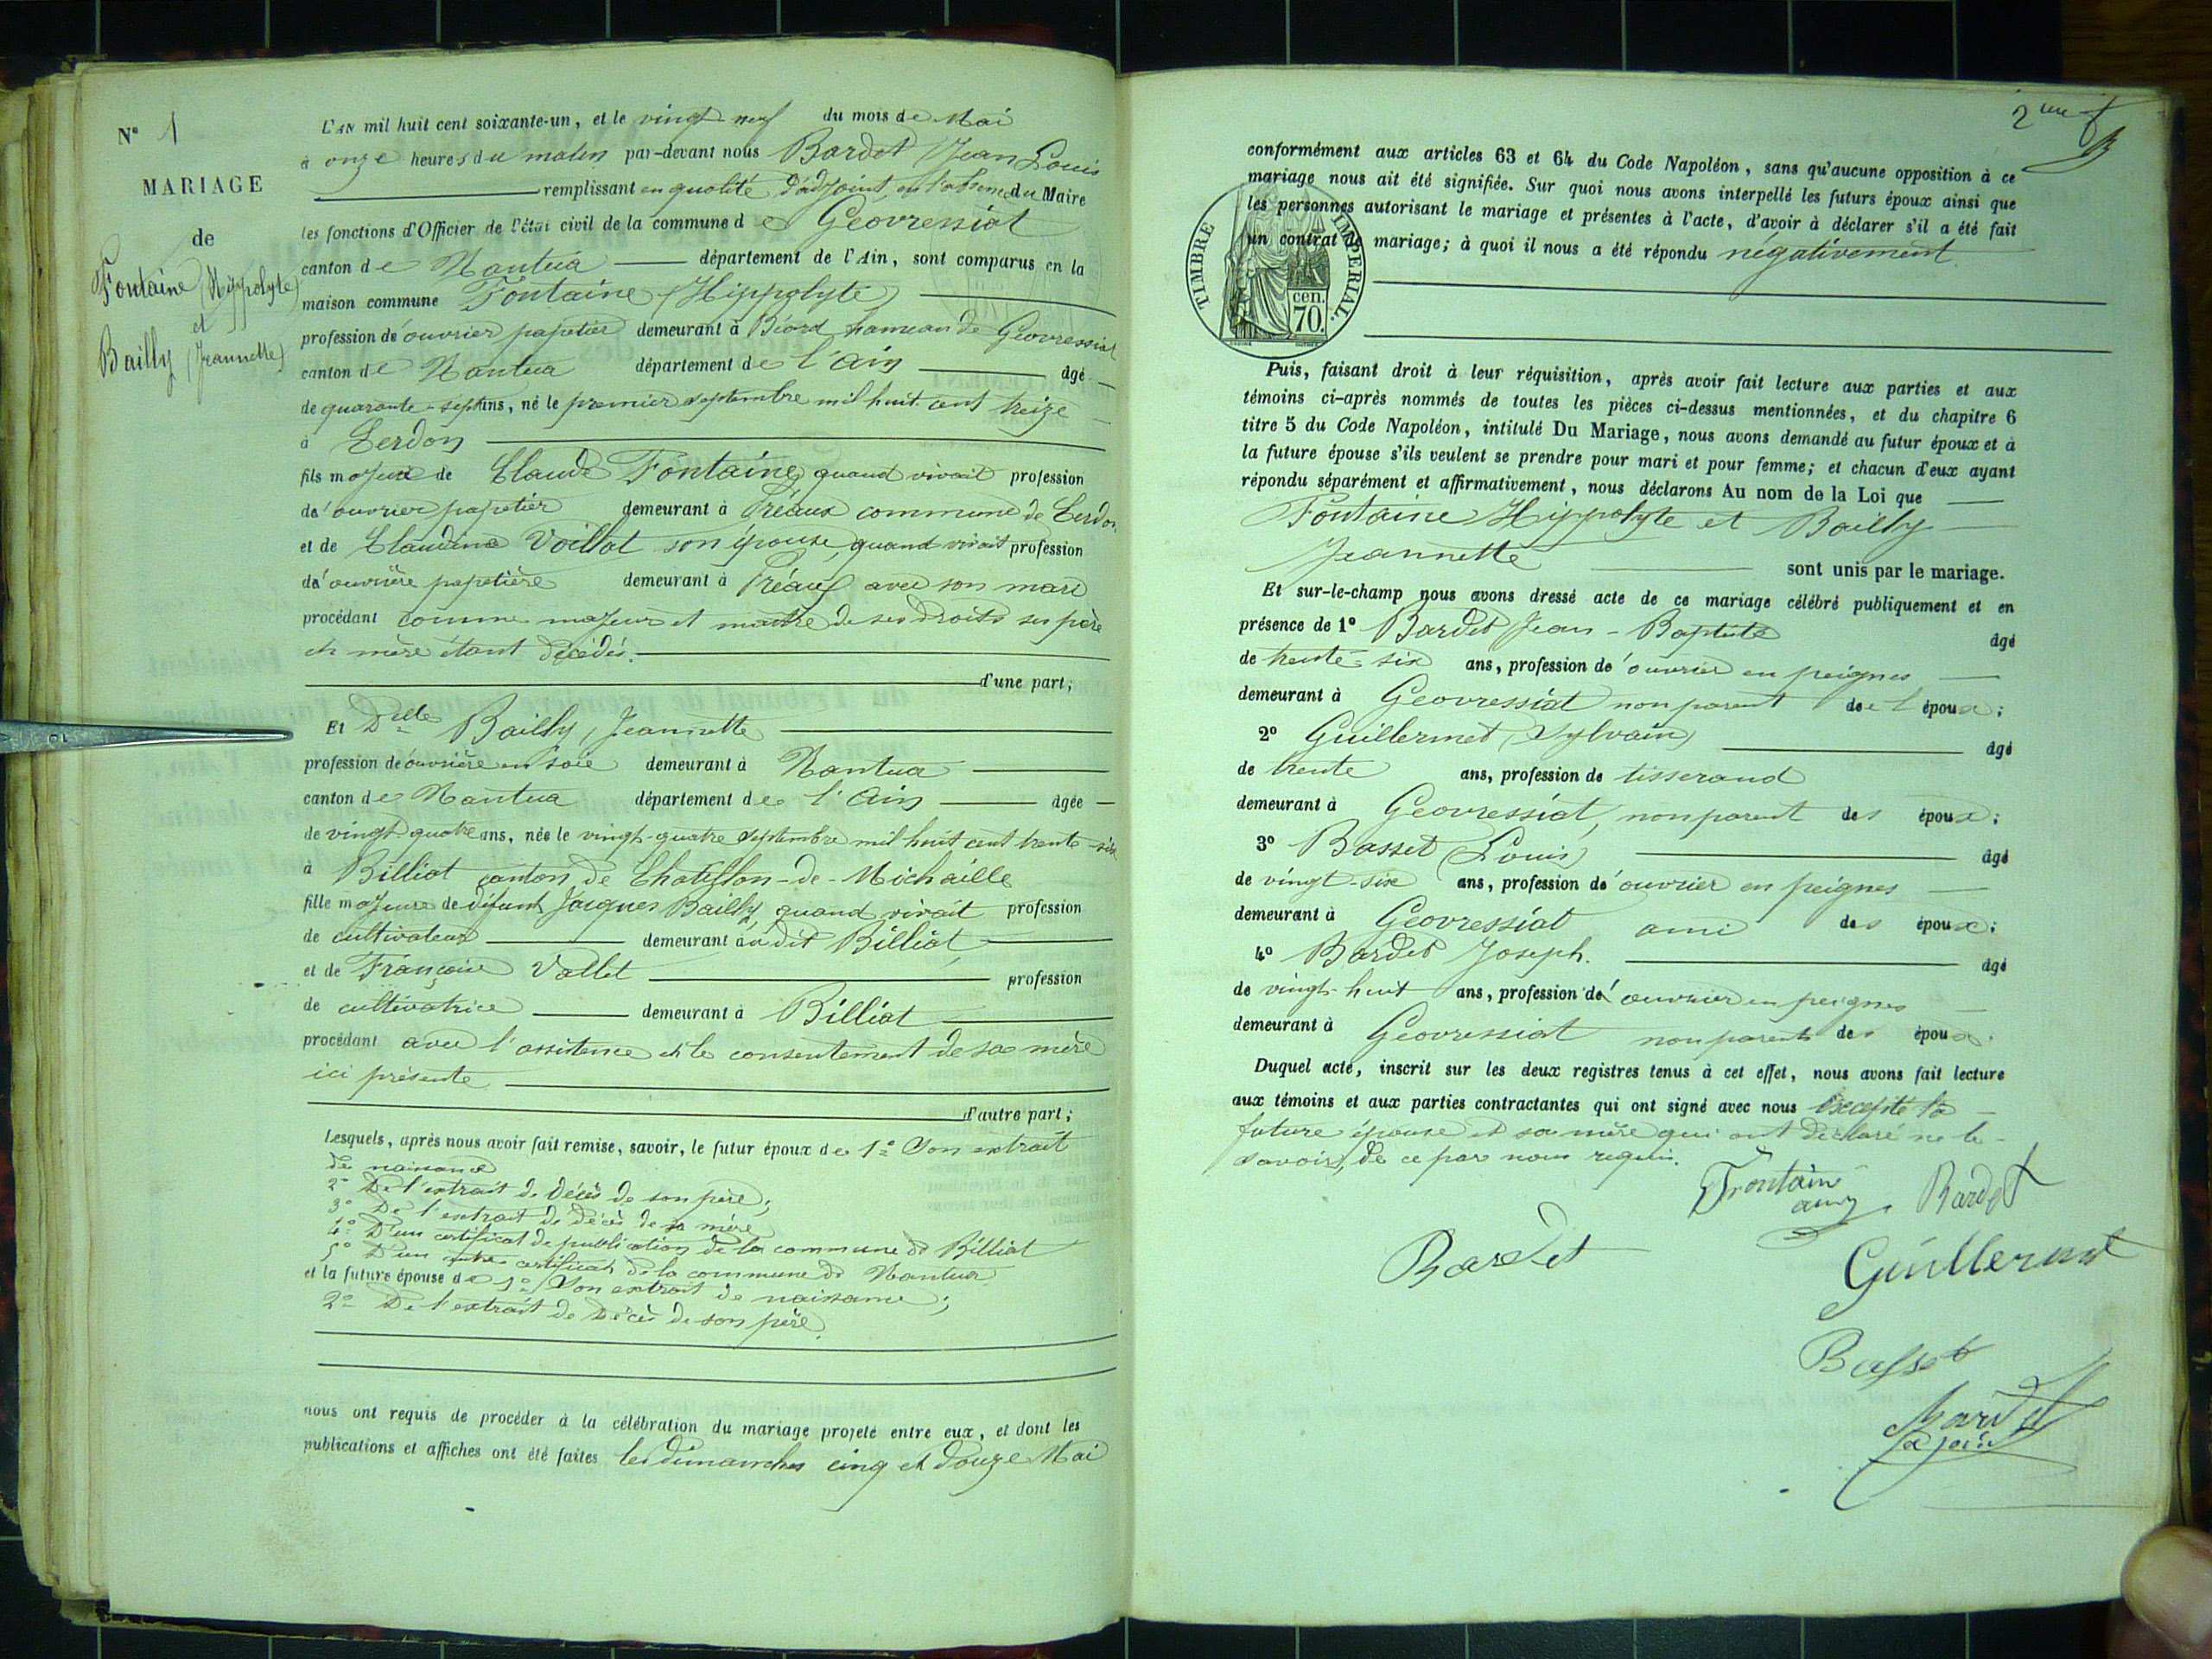 N° 1
MARIAGE
de
Fontaine (Hippolyte)
et
Bailly (Jeannette)
L'AN mil huit cent soixante-un, et le vingt neuf du mois de Mai
à onze heures du matin par-devant nous Bardet (Jean Louis
remplissant en qualité d'adjoint, en l'absence du Maire
les fonctions d'Officier de l'état civil de la commune de Geovressiat
canton de Nantua département de l'Ain, sont comparus en la
maison commune Fontaine (Hippolyte)
profession de ouvrier papetier demeurant à Béard hameau de Geovressiat
canton de Nantua département de l'Ain âgé
de quarante-sept ans, né le premier septembre mil huit cent treize
à Cerdon
fils majeur de Claude Fontaine quand vivait profession
de ouvrier papetier demeurant à Préaux commune de Cerdon
et de Claudine Voillat son épouse, quand vivait profession
de ouvrière papetière demeurant à Préaux avec son mari
procédant comme majeur et maître de ses droits ses père
et mère étant décédés.
d'une part;
Et Delle Bailly, Jeannette
profession de ouvrière en soie demeurant à Nantua
canton de Nantua département de l'Ain âgée
de vingt quatre ans, née le vingt-quatre septembre mil huit cent trente-six
à Billiat canton de Chatillon-de-Michaille
fille majeure de défunt Jacques Bailly, quand vivait profession
de cultivateur demeurant au dit Billiat,
et de Françoise Vallet profession
de cultivatrice demeurant à Billiat
procédant avec l'assitence et le consentement de sa mère
ici présente
d'autre part;
Lesquels, après nous avoir fait remise, savoir, le futur époux de 1° Son extrait
de naissance
2° De l'extrait de décès de son père;
3° De l'extrait de décès de sa mère
4° D'un certificat de publication de la commune de Billiat
5° D'un autre certificat de la commune de Nantua
et la future épouse de 1° Son extrait de naissance;
2° De l'extrait de Décès de son père.
nous ont requis de procéder à la célébration du mariage projeté entre eux, et dont les
publications et affiches ont été faites les dimanches cinq et Douze Mai
2me f
conformément aux articles 63 et 64 du Code Napoléon, sans qu'aucune opposition à ce
mariage nous ait été signifiée. Sur quoi nous avons interpellé les futurs époux ainsi que
les personnes autorisant le mariage et présentes à l'acte, d'avoir à déclarer s'il a été fait
un contrat de mariage; à quoi il nous a été répondu négativement
TIMBRE IMPERIAL.
cen.
70.
Puis, faisant droit à leur réquisition, après avoir fait lecture aux parties et aux
témoins ci-après nommés de toutes les pièces ci-dessus mentionnées, et du chapitre 6
titre 5 du Code Napoléon, intitulé Du Mariage, nous avons demandé au futur époux et à
la future épouse s'ils veulent se prendre pour mari et pour femme; et chacun d'eux ayant
répondu séparément et affirmativement, nous déclarons Au nom de la Loi que
Fontaine Hippolyte et Bailly
Jeannette sont unis par le mariage.
Et sur-le-champ nous avons dressé acte de ce mariage célébré publiquement et en
présence de 1° Bardet Jean-Baptiste âgé
de trente-six ans, profession de ouvrier en peignes
demeurant à Geovressiat non parent de l'époux;
2° Guillermet (Sylvain) âgé
de trente ans, profession de tisserand
demeurant à Geovressiat, non parent des époux;
3° Basset (Louis) âgé
de vingt-six ans, profession de ouvrier en peignes
demeurant à Geovressiat ami des époux;
4° Bardet Joseph. âgé
de vingt-huit ans, profession de ouvrier en peignes
demeurant à Geovressiat non parent des époux.
Duquel acte, inscrit sur les deux registres tenus à cet effet, nous avons fait lecture
aux témoins et aux parties contractantes qui ont signé avec nous Excepté la
future épouse et sa mère qui ont déclaré ne le
savoir, de ce par nous requis.
Bardet
Bardet
Guillermet
Basset
Bardet
adjoint